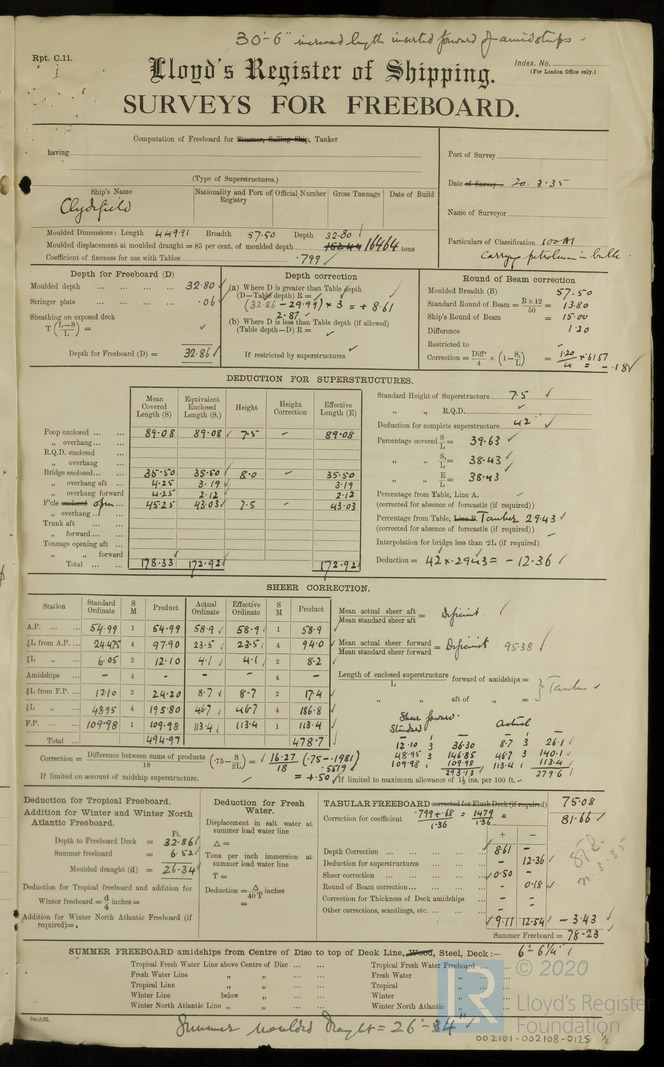 30'-6" increased length inserted forward of amidships.
Rpt. C.11.
Index. No.
(For London Office only.)
Lloyd's Register of Shipping.
SURVEYS FOR FREEBOARD.
Computation of Freeboard for Steamer, Sailing Ship, Tanker
having
(Type of Superstructures.)
Port of Survey
Date of Survey 20.3.35
Name of Surveyor
Particulars of Classification 100A1
Carrying petroleum in bulk.
Ship's Name Nationality and Port of Registry Official Number Gross Tonnage Date of Build
Clydefield
Moulded Dimensions: Length 449.91 Breadth 57.50 Depth 32.80
Moulded displacement at moulded draught = 85 per cent. of moulded depth 16464 tons
Coefficient of fineness for use with Tables .799
Depth for Freeboard (D)
Moulded depth 32.80
Stringer plate .06
Sheathing on exposed deck
T (L-S/L) =
Depth for Freeboard (D) = 32.86
Depth correction
(a) Where D is greater than Table depth
(D-Table depth) R =
(32.86 - 29.99) × 3 = + 8.61
2.87
(b) Where D is less than Table depth (if allowed)
(Table depth-D) R =
If restricted by superstructures
Round of Beam correction
Moulded Breadth (B) 57.50
Standard Round of Beam = B × 12 / 50 = 13.80
Ship's Round of Beam = 15.00
Difference 1.20
Restricted to
Correction = Diff / 4 × (1 - S₁/L) = 1.20/4 × .6157 = -.18
DEDUCTION FOR SUPERSTRUCTURES.
Mean Covered Length (S) Equivalent Enclosed Length (S₁) Height Height Correction Effective Length (E)
Poop enclosed 89.08 89.08 7.5 - 89.08
" overhang
R.Q.D. enclosed
" overhang
Bridge enclosed 35.50 35.50 8.0 - 35.50
" overhang aft 4.25 3.19 3.19
" overhang forward 4.25 2.12 2.12
F'cle enclosed open 45.25 43.03 7.5 - 43.03
" overhang
Trunk aft
" forward
Tonnage opening aft
" " forward
Total 178.33 172.92 172.92
Standard Height of Superstructure 7.5
" " R.Q.D.
Deduction for complete superstructure 42"
Percentage covered S/L = 39.63
" " S₁/L = 38.43
" " E/L = 38.43
Percentage from Table, Line A.
(corrected for absence of forecastle (if required))
Percentage from Table, Line B Tanker 29.43
(corrected for absence of forecastle (if required))
Interpolation for bridge less than ·2L (if required)
Deduction = 42 × .2943 = -12.36
SHEER CORRECTION.
Station Standard Ordinate S M Product Actual Ordinate Effective Ordinate S M Product
A.P. 54.99 1 54.99 58.9 58.9 1 58.9
⅙L from A.P. 24.475 4 97.90 23.5 23.5 4 94.0
⅓L " 6.05 2 12.10 4.1 4.1 2 8.2
Amidships - 4 - - - 4 -
⅓L from F.P. 12.10 2 24.20 8.7 8.7 2 17.4
⅙L " 48.95 4 195.80 46.7 46.7 4 186.8
F.P. 109.98 1 109.98 113.4 113.4 1 113.4
Total 494.97 478.7
Mean actual sheer aft / Mean standard sheer aft = Deficient.
Mean actual sheer forward / Mean standard sheer forward = Deficient .9538
Length of enclosed superstructure / L forward of amidships =
" " aft of " =
} Tanker
Sheer forward.
Standard Actual
12.10 3 36.30 8.7 3 26.1
48.95 3 146.85 46.7 3 140.1
109.98 1 109.98 113.4 1 113.4
293.13 279.6
Correction = Difference between sums of products / 18 (·75 - S/2L) = 16.27/18 (.75 - .1981) .5519
= +.50
If limited on account of midship superstructure.
If limited to maximum allowance of 1½ ins. per 100 ft.
Deduction for Tropical Freeboard.
Addition for Winter and Winter North Atlantic Freeboard.
Ft.
Depth to Freeboard Deck = 32.86
Summer freeboard = 6.52
Moulded draught (d) = 26.34
Deduction for Tropical freeboard and addition for
Winter freeboard = d/4 inches =
Addition for Winter North Atlantic Freeboard (if required) =
Deduction for Fresh Water.
Displacement in salt water at summer load water line
Δ =
Tons per inch immersion at summer load water line
T =
Deduction = Δ / 40 T inches
=
TABULAR FREEBOARD corrected for Flush Deck (if required) 75.08
Correction for coefficient .799+.68 / 1.36 = 1.479 / 1.36 = 81.66
+ -
Depth Correction 8.61 -
Deduction for superstructures - 12.36
Sheer correction 0.50 -
Round of Beam correction - 0.18
Correction for Thickness of Deck amidships - -
Other corrections, scantlings, etc. - -
9.11 12.54 - 3.43
Summer Freeboard = 78.23
SUMMER FREEBOARD amidships from Centre of Disc to top of Deck Line, Wood, Steel, Deck:- 6'-6¼"
Tropical Fresh Water Line above Centre of Disc
Fresh Water Line " "
Tropical Line " "
Winter Line below "
Winter North Atlantic Line " "
Tropical Fresh Water Freeboard
Fresh Water "
Tropical "
Winter "
Winter North Atlantic "
Summer moulded draught = 26'-4"
© 2020
Lloyd's Register
Foundation
002101-002108-0125 ½